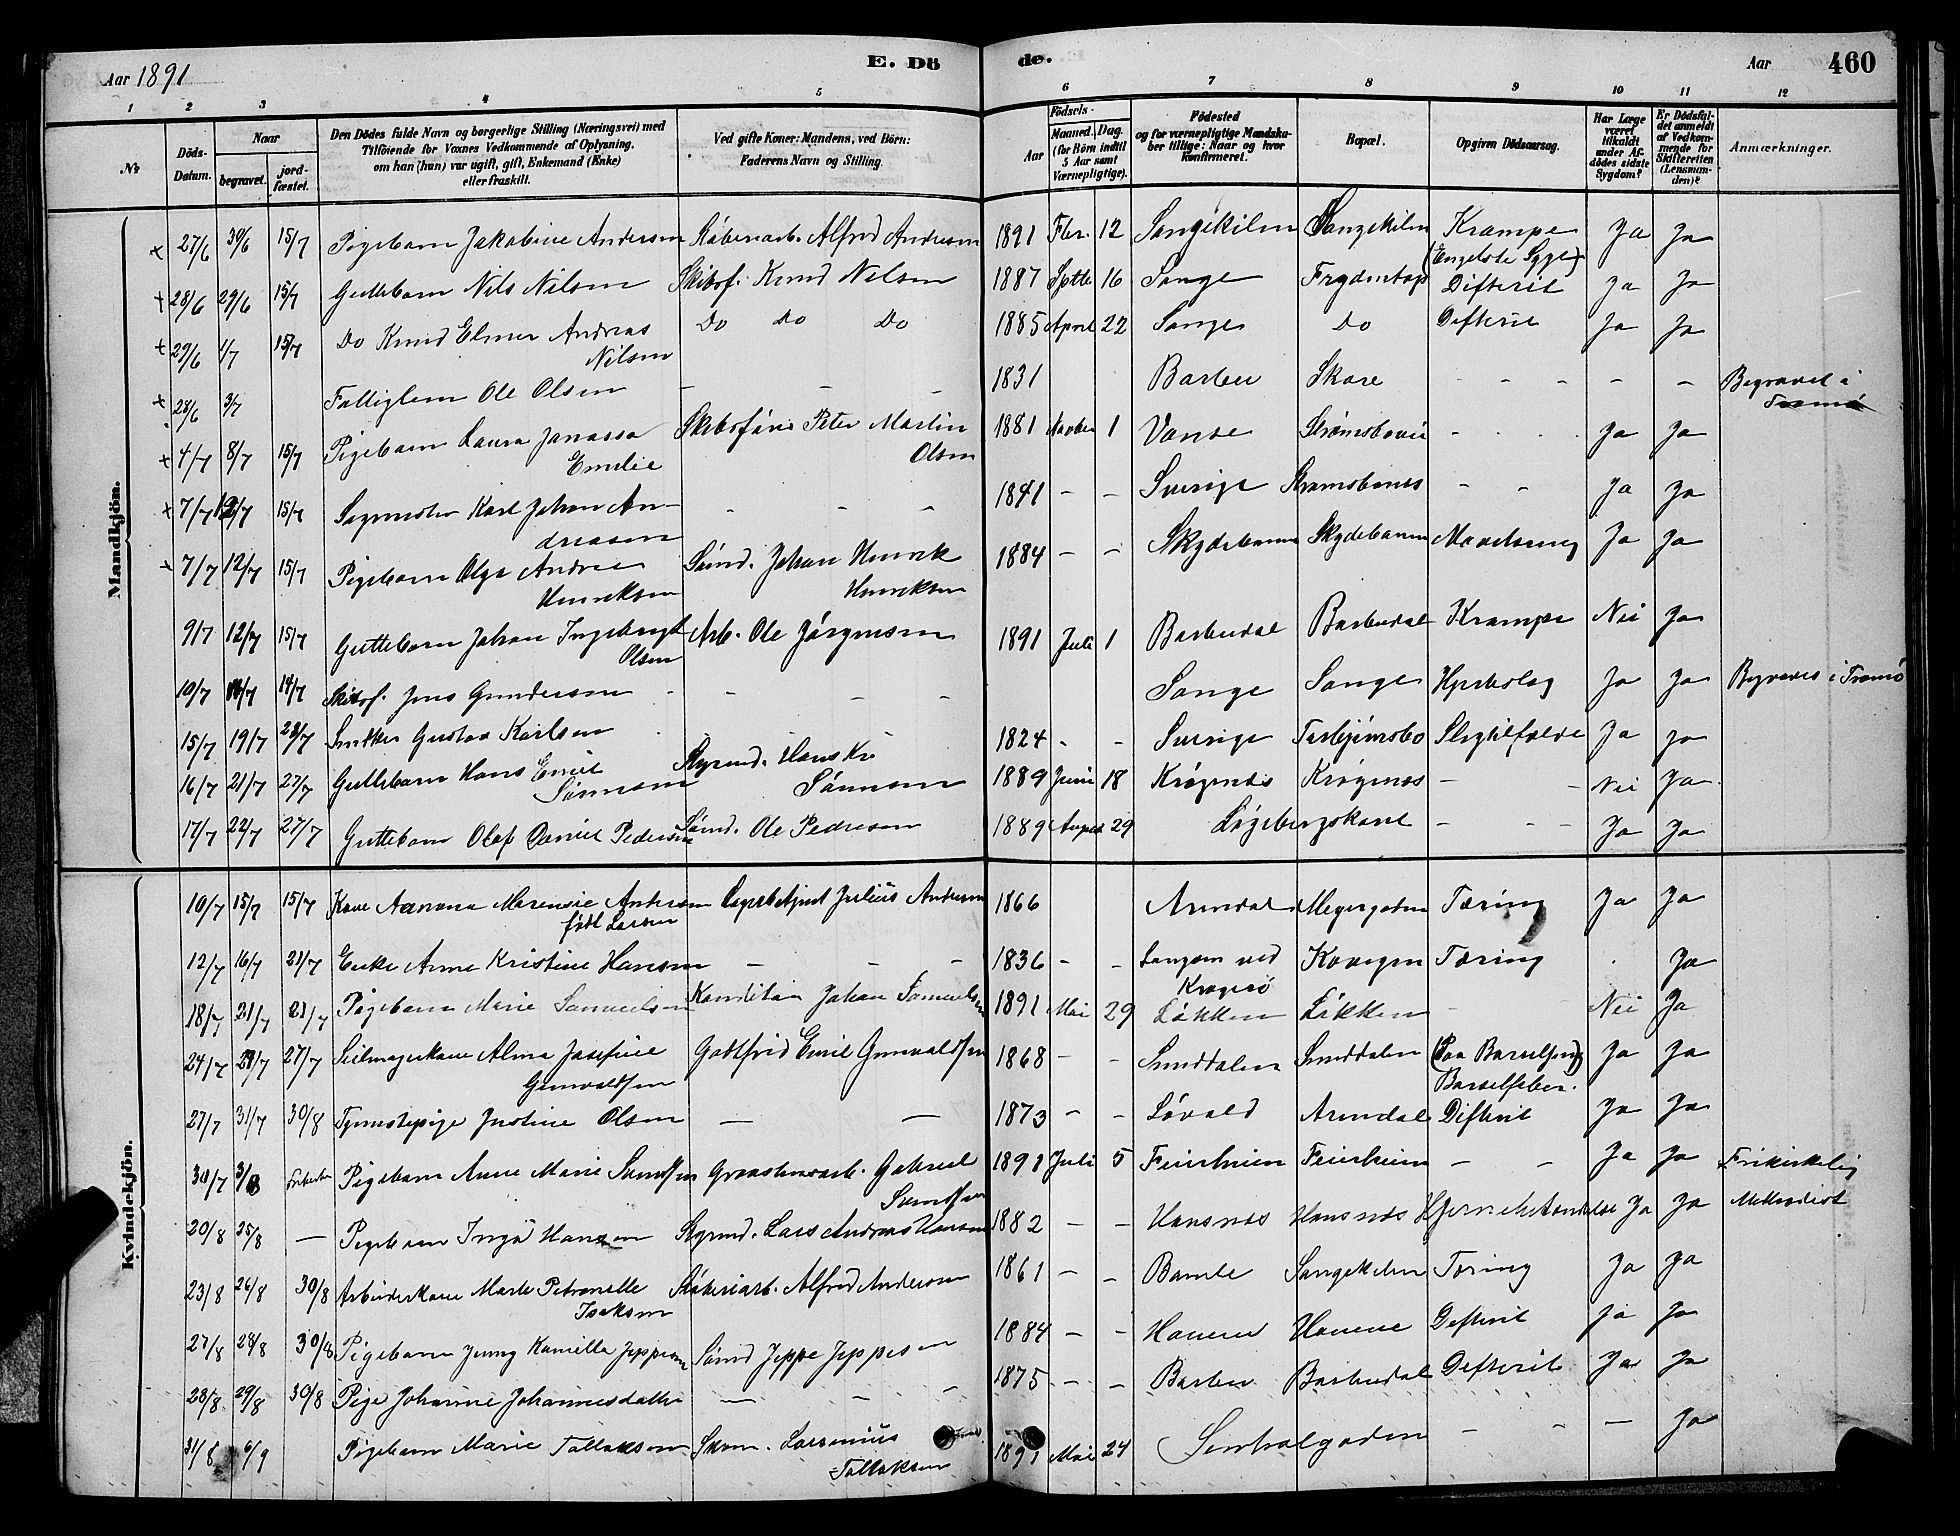 Aar 1891
E. Dö
de.
Aar
460
1 2 3 4 5 6 7 8 9 10 11 12
No
Döds-Datum.
Naar
begravet.
jordfæstet.
Den Dödes fulde Navn og borgerlige Stilling (Næringsvei) med
Tilföiende for Voxnes Vedkommende af Oplysning,
om han (hun) var ugift, gift, Enkemand (Enke)
eller fraskilt.
Ved gifte Koner: Mandens, ved Börn:
Faderens Navn og Stilling.
Födsels-
Aar
Maaned. Dag.
(for Börn indtil
5 Aar samt
Værnepligtige).
Födested
og for værnepligtige Mandskaber tillige: Naar og hvor
konfirmeret.
Bopæl.
Opgiven Dödsaarsag.
Har Læge
været
tilkaldt
under Afdödes sidste
Sygdom?
Er Dödsfaldet anmeldt
af Vedkommende for
Skifteretten
(Lensmanden)?
Anmærkninger.
Mandkjön.
+ 27/6 30/6 15/7 Pigebarn Jakobine Andersen Alfred Andersen 1891 Fbr. 12 Songekilen Songekilen Krampe Ja Ja
(Engelske Syge)
+ 28/6 29/6 15/7 Guttebarn Nils Nilsen Skibsf. Knud Nilsen 1887 Septb 16 Songe Difterit Ja Ja
+ 29/6 1/7 15/7 Do Knud Elmer Andreas Do Do Do 1885 April 22 Songe Do Difterit Ja Ja
Nilsen
+ 28/6 3/7 Fattiglem Ole Olsen - - - 1831 Barbu Skare - - - - - Begravet i
Tromø
+ 4/7 8/7 15/7 Pigebarn Laura Janassa Skibsfører Peter Martin 1881 Novber 1 Vanse - - - Ja Ja
Emilie Olsen
+ 7/7 12/7 15/7 Karl Johan An- - - - 1841 - - Sverige Strømsbonæs - - Ja Ja
dreasen
+ 7/7 12/7 15/7 Pigebarn Olga Andrea Sømd. Johan Henrik 1884 - - Skydebanen Skydebanen Ja Ja
Henriksen Henriksen
9/7 12/7 15/7 Guttebarn Johan Ingebrigt Arb. Ole Jørgensen 1891 Juli 1 Barbudal Barbudal Krampe Nei Ja
Olsen
10/7 14/7 14/7 Skibsf. Jens Gundersen - - - Songe Songe Hjerteslag Ja Ja Begraves i Tromø
15/7 19/7 28/7 Snekker Gustav Karlsen 1824 - - Sverige Slagtilfælde Ja Ja
16/7 21/7 27/7 Guttebarn Hans Emil Styrmd. Hans Kr 1889 Juni 18 Krøgenes Krøgenæs - - Nei Ja
Sørensen Sørensen
17/7 22/7 27/7 Guttebarn Olaf Daniel Pedersen Sømd. Ole Pedersen 1889 August 29 - - Ja Ja
Kvindekjön.
10/7 15/7 15/7 Kone Marensie Andersen Julius Andersen 1866 Arendal Tæring Ja Ja
født Larsen
12/7 16/7 21/7 Enke Anne Kristine Hansen - - - 1836 - - Langøen ved Tæring . Ja
Kragerø
18/7 21/7 21/7 Pigebarn Marie Samuelsen Konditor Johan Samuelsen 1891 Mai 29 Løkken Løkken - Nei Ja
24/7 27/7 Seilmagerkone Alma Josefine Gotfrid Emil Gunvaldsen 1868 - - Smeddalen Smeddalen (Paa Barselseng) Ja Ja
Gunvaldsen Barselfeber.
27/7 31/7 30/8 Tjenestepige Justine Olsen - - 1873 - - Løvold Arendal Difterit Ja Ja
30/7 3/8 Pigebarn Anne Marie Gabriel 1891 Juli 5 Feierheien Feierheien - - Ja Ja Frikirkelig
20/8 25/8 - Pigebarn Inga Hansen Styrmd. Lars Andreas Hansen 1882 - - Hansnæs Hansnæs Ja Ja Methodist
23/8 26/8 30/8 Arbeiderkone Petronelle Alfred Andersen 1861 - - Bamle Songekilen Tæring Ja Ja
Isaksen
27/8 28/8 30/8 Pigebarn Jenny Kamilla Jeppesen Sømd Jeppe Jeppesen 1884 - - Havene Havene Difterit Ja Ja
28/8 29/8 30/8 Pige Johanne Johannesdatter - - - 1875 - - Barbu Barbudal Difterit Ja Ja
31/8 6/9 Pigebarn Marie Tallaksen Skom. 1891 Mai 24 Sentralgaden - - - Ja
Tallaksen